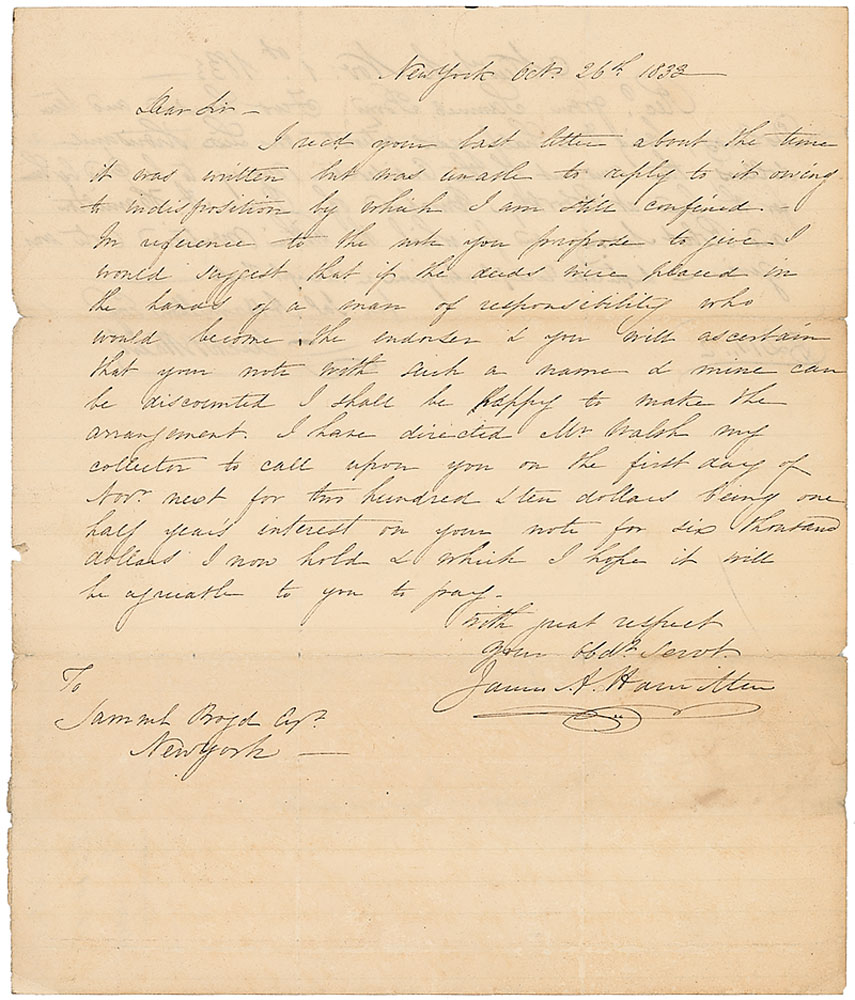 New York Oct. 26th 1833
Dear Sir –
I recd your last letter about the time
it was written but was unable to reply to it owing
to indisposition by which I am still confined –
In reference to the note you propose to give I
would suggest that if the deeds were placed in
the hands of a man of responsibility who
would become the endorser & you will ascertain
that your note with such a name & mine can
be discounted I shall be happy to make the
arrangement. I have directed Mr Walsh my
collector to call upon you on the first day of
Novr next for two hundred & ten dollars being one
half year's interest on your note for six thousand
dollars I now hold & which I hope it will
be agreeable to you to pay –
With great respect
Your obdt Servt.
James A. Hamilton
To
Samuel Boyd Esqr
New York —